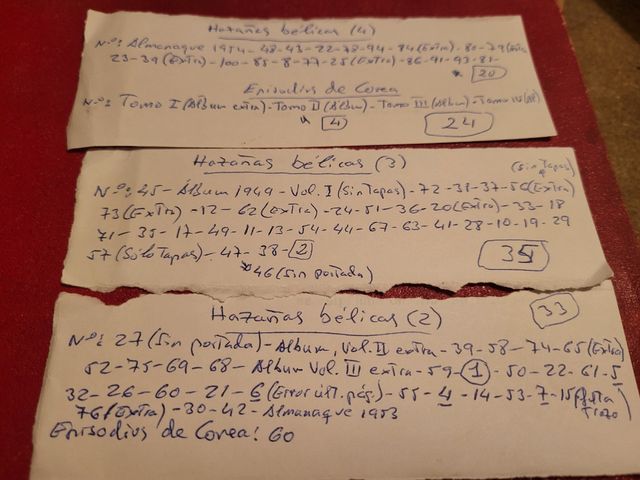 Hazañas bélicas (4)
Nos: Almanaque 1954 - 48-43-22-78-94-84 (Extra) - 80-79 (Extra
23-39 (Extra) - 100-85-8-77-25 (Extra) - 86-91-93-81-
20
Episodios de Corea
Nos: Tomo I (Album extra) - Tomo II (Album) - Tomo III (Album) - Tomo
4
24
Hazañas bélicas (3)
(sin tapas)
Nos: 45 - Álbum 1949 - Vol. I (sin tapas) - 72-31-37-56 (Extra)
73 (Extra) - 12-62 (extra) - 24-51-36-20 (Extra) - 33-18
71-35-17-49-11-13-54-44-67-63-41-28-10-19-29
57 (Sólo tapas) - 47-38-2
35
46 (sin portada)
33
Hazañas bélicas (2)
Nos: 27 (Sin portada) - Album, Vol. II extra - 39-58-74-65 (Extra)
52-75-69-68 - Album Vol. III extra - 59-1-50-22-61-5
32-26-60-21-6 (Error últ. pág.) - 55-4-14-53-7-15 (falta
trozo
76 (Extra) - 30-42 - Almanaque 1953
Episodios de Corea: 60